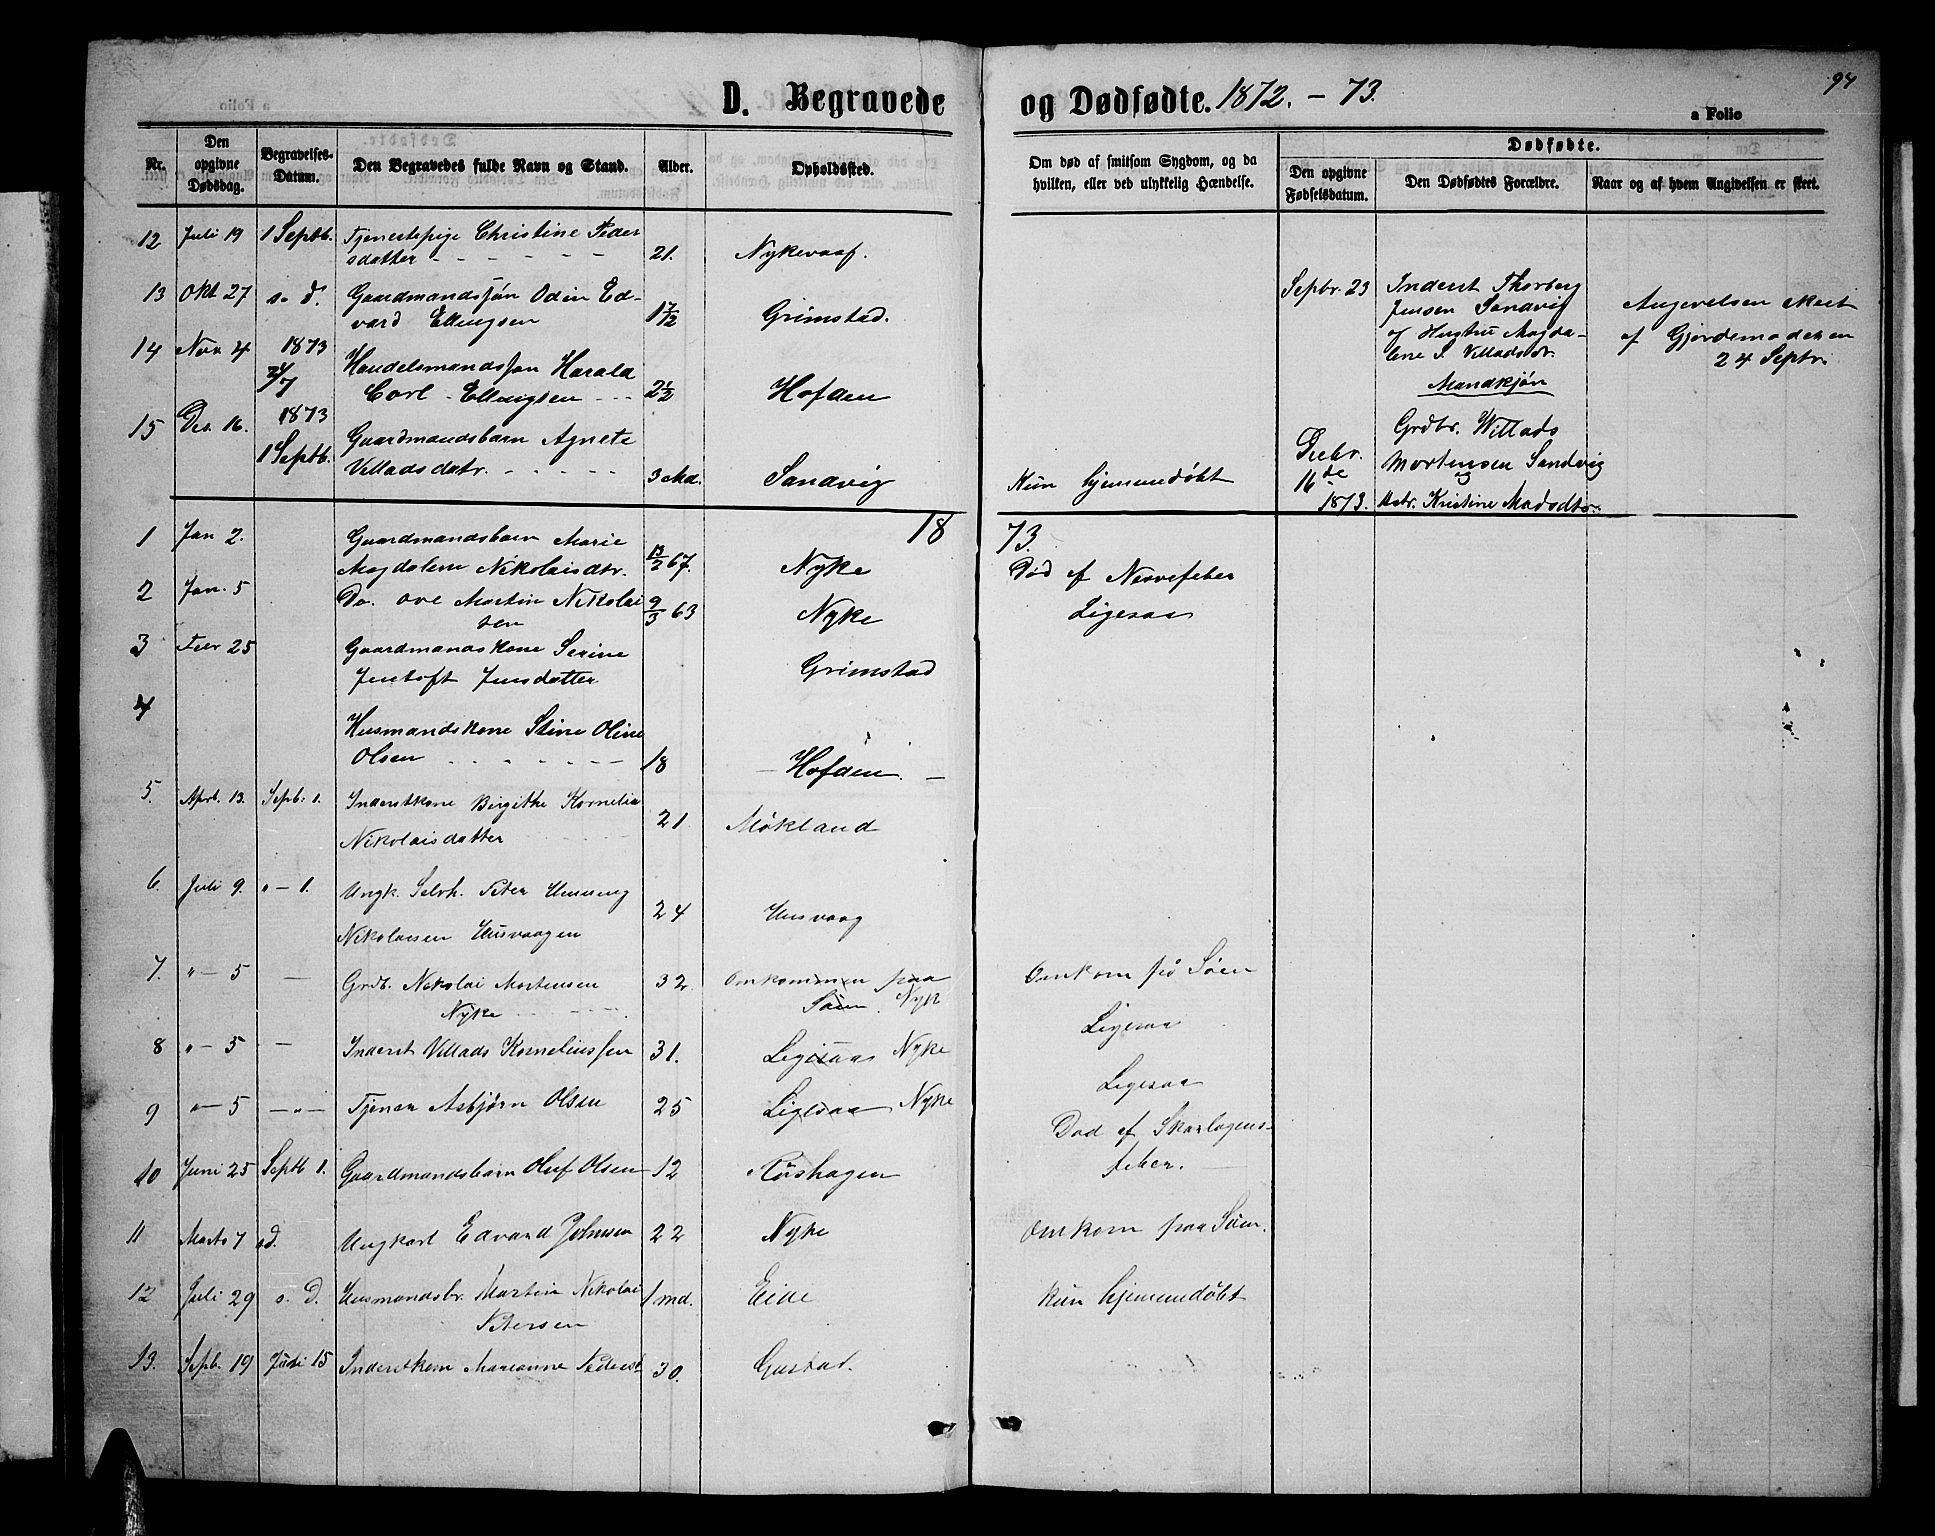 94
D. Begravede og Dødfødte. 1872. - 73.
a Folio
Nr.
Den opgivne Dødsdag.
Begravelses-Datum.
Den Begravedes fulde Navn og Stand.
Alder.
Opholdssted.
Om død af smitsom Sygdom, og da
hvilken, eller ved ulykkelig Hændelse.
Dødfødte.
Den opgivne Fødselsdatum.
Den Dødfødtes Forældre.
Naar og af hvem Angivelsen er skeet.
12 Juli 19 1 Septb. Tjenestepige Christine Peder
sdatter - - - - - - 21. Nykevaag.
13 Okt 27 s. d. Gaardmandssøn Odin Ed-
vard Ellingsen 1 7/12 Grimstad.
14 Nov 4 1873 Handelsmandssøn Harald
Carl Ellingsen 2 1/2 Hofden
15 Des. 16. 1873
1 Septb. Gaardmandsbarn Agnete
Villadsdatr. 3 Md. Sandvig Kun hjemmedøbt
Septbr. 23 Inderst Thorberg
Jensen Sandvig
og Hustru Magda-
lene S. Villadsdr.
Mandkjøn
Angivelsen skeet
af Gjordemoderen
24 Septr.
Decbr.
16de
1873.
Grdbr. Willads
Mortensen Sandvig
og
Hstr. Kristine Madsdtr.
1873.
1 Jan 2. Gaardmandsbarn Marie
Magdalene Nikolaisdtr. 13/2 67. Nyke Død af Nervefeber
2 Jan. 5 Do. Ove Martin Nikolai
sen 9/3 63 Nyke Ligesaa
3 Febr 25 Gaardmandskone Serine
Jentoft Jensdatter Grimstad
4
Husmandskone Stine Oline
Olsen 18 - Hofden. -
5. Aprl. 13. Septb. 1. Inderstkone Birgithe Kornelia
Nikolaisdatter 21. Møkland
6. Juli 9. " - 1. Ungk. Selvh. Peter Henning
Nikolaisen Husvaagen 24 Husvaag
7. " - 5 - Grdb. Nikolai Mortensen
Nyke 32 Omkommen paa
Søen. Nyk Omkom på Søen
8 " - 5 - Inderst Villads Korneliussen 31. Ligesaa Nyke Ligesaa
9 " - 5 - " - Tjener Asbjørn Olsen 25 Ligesaa Nyke Ligesaa
10 Juni 25 Septb 1. Gaardmandsbarn Oluf Olsen 12 Rishagen Død af Skarlagens-
feber.
11 Marts 7 sd. Ungkarl Edvard Johnsen 22 Nyke Omkom paa Søen.
12 Juli 29 s. D. Husmandsbr. Martin Nikolai
Petersen 1 md. Eide kun hjemmedøbt
13. Septb. 19 Juli 15 Inderstkone Marianne Pedersd 30. Gustad.